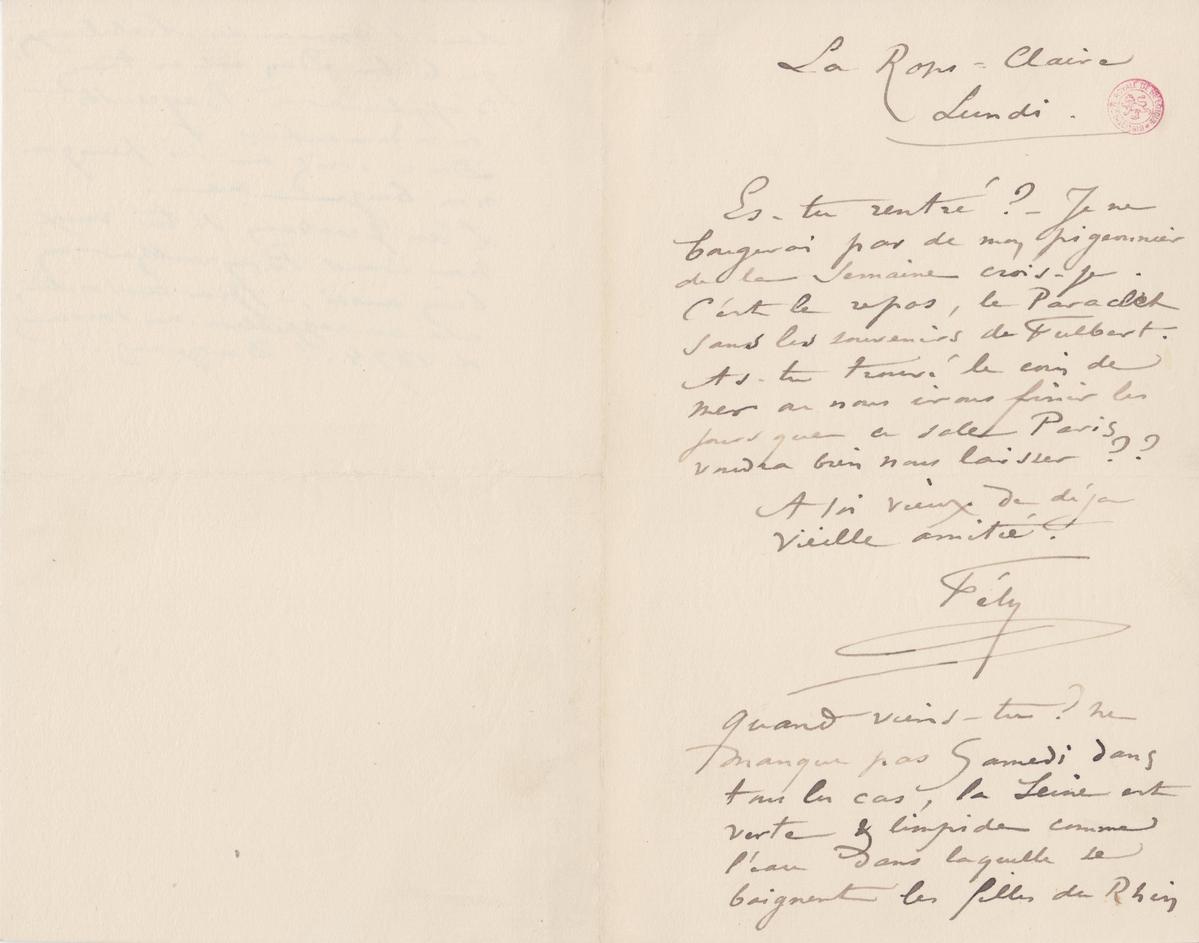 La Rops = Claire
Lundi .
Es-tu rentré ? – Je ne
bougerai pas de mon pigeonnier
de la Semaine crois-je .
C'est le repos, le Paraclet
sans les souvenirs de Fulbert.
As-tu trouvé le coin de
mer ou nous irons finir les
jours que ce sale Paris
voudra bien nous laisser ??
A toi vieux de déja
vieille amitié.
Fély
Quand viens-tu ? ne
manque pas Samedi dans
tous les cas, la Seine est
verte & limpide comme
l'eau dans laquelle se
baignent les filles du Rhin